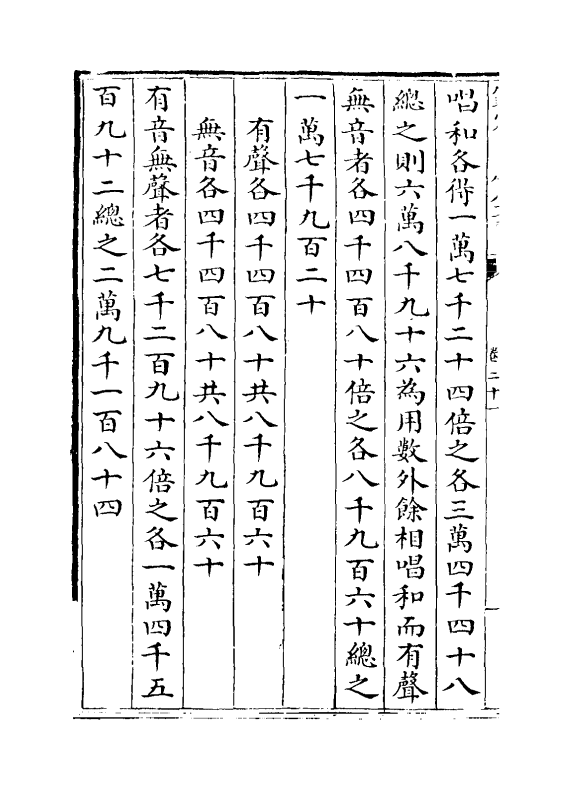 唱和各得一萬七千二十四倍之各三萬四千四十八
總之則六萬八千九十六為用數外餘相唱和而有聲
無音者各四千四百八十倍之各八千九百六十總之
一萬七千九百二十
有聲各四千四百八十共八千九百六十
無音各四千四百八十共八千九百六十
有音無聲者各七千二百九十六倍之各一萬四千五
百九十二總之二萬九千一百八十四
卷二十一